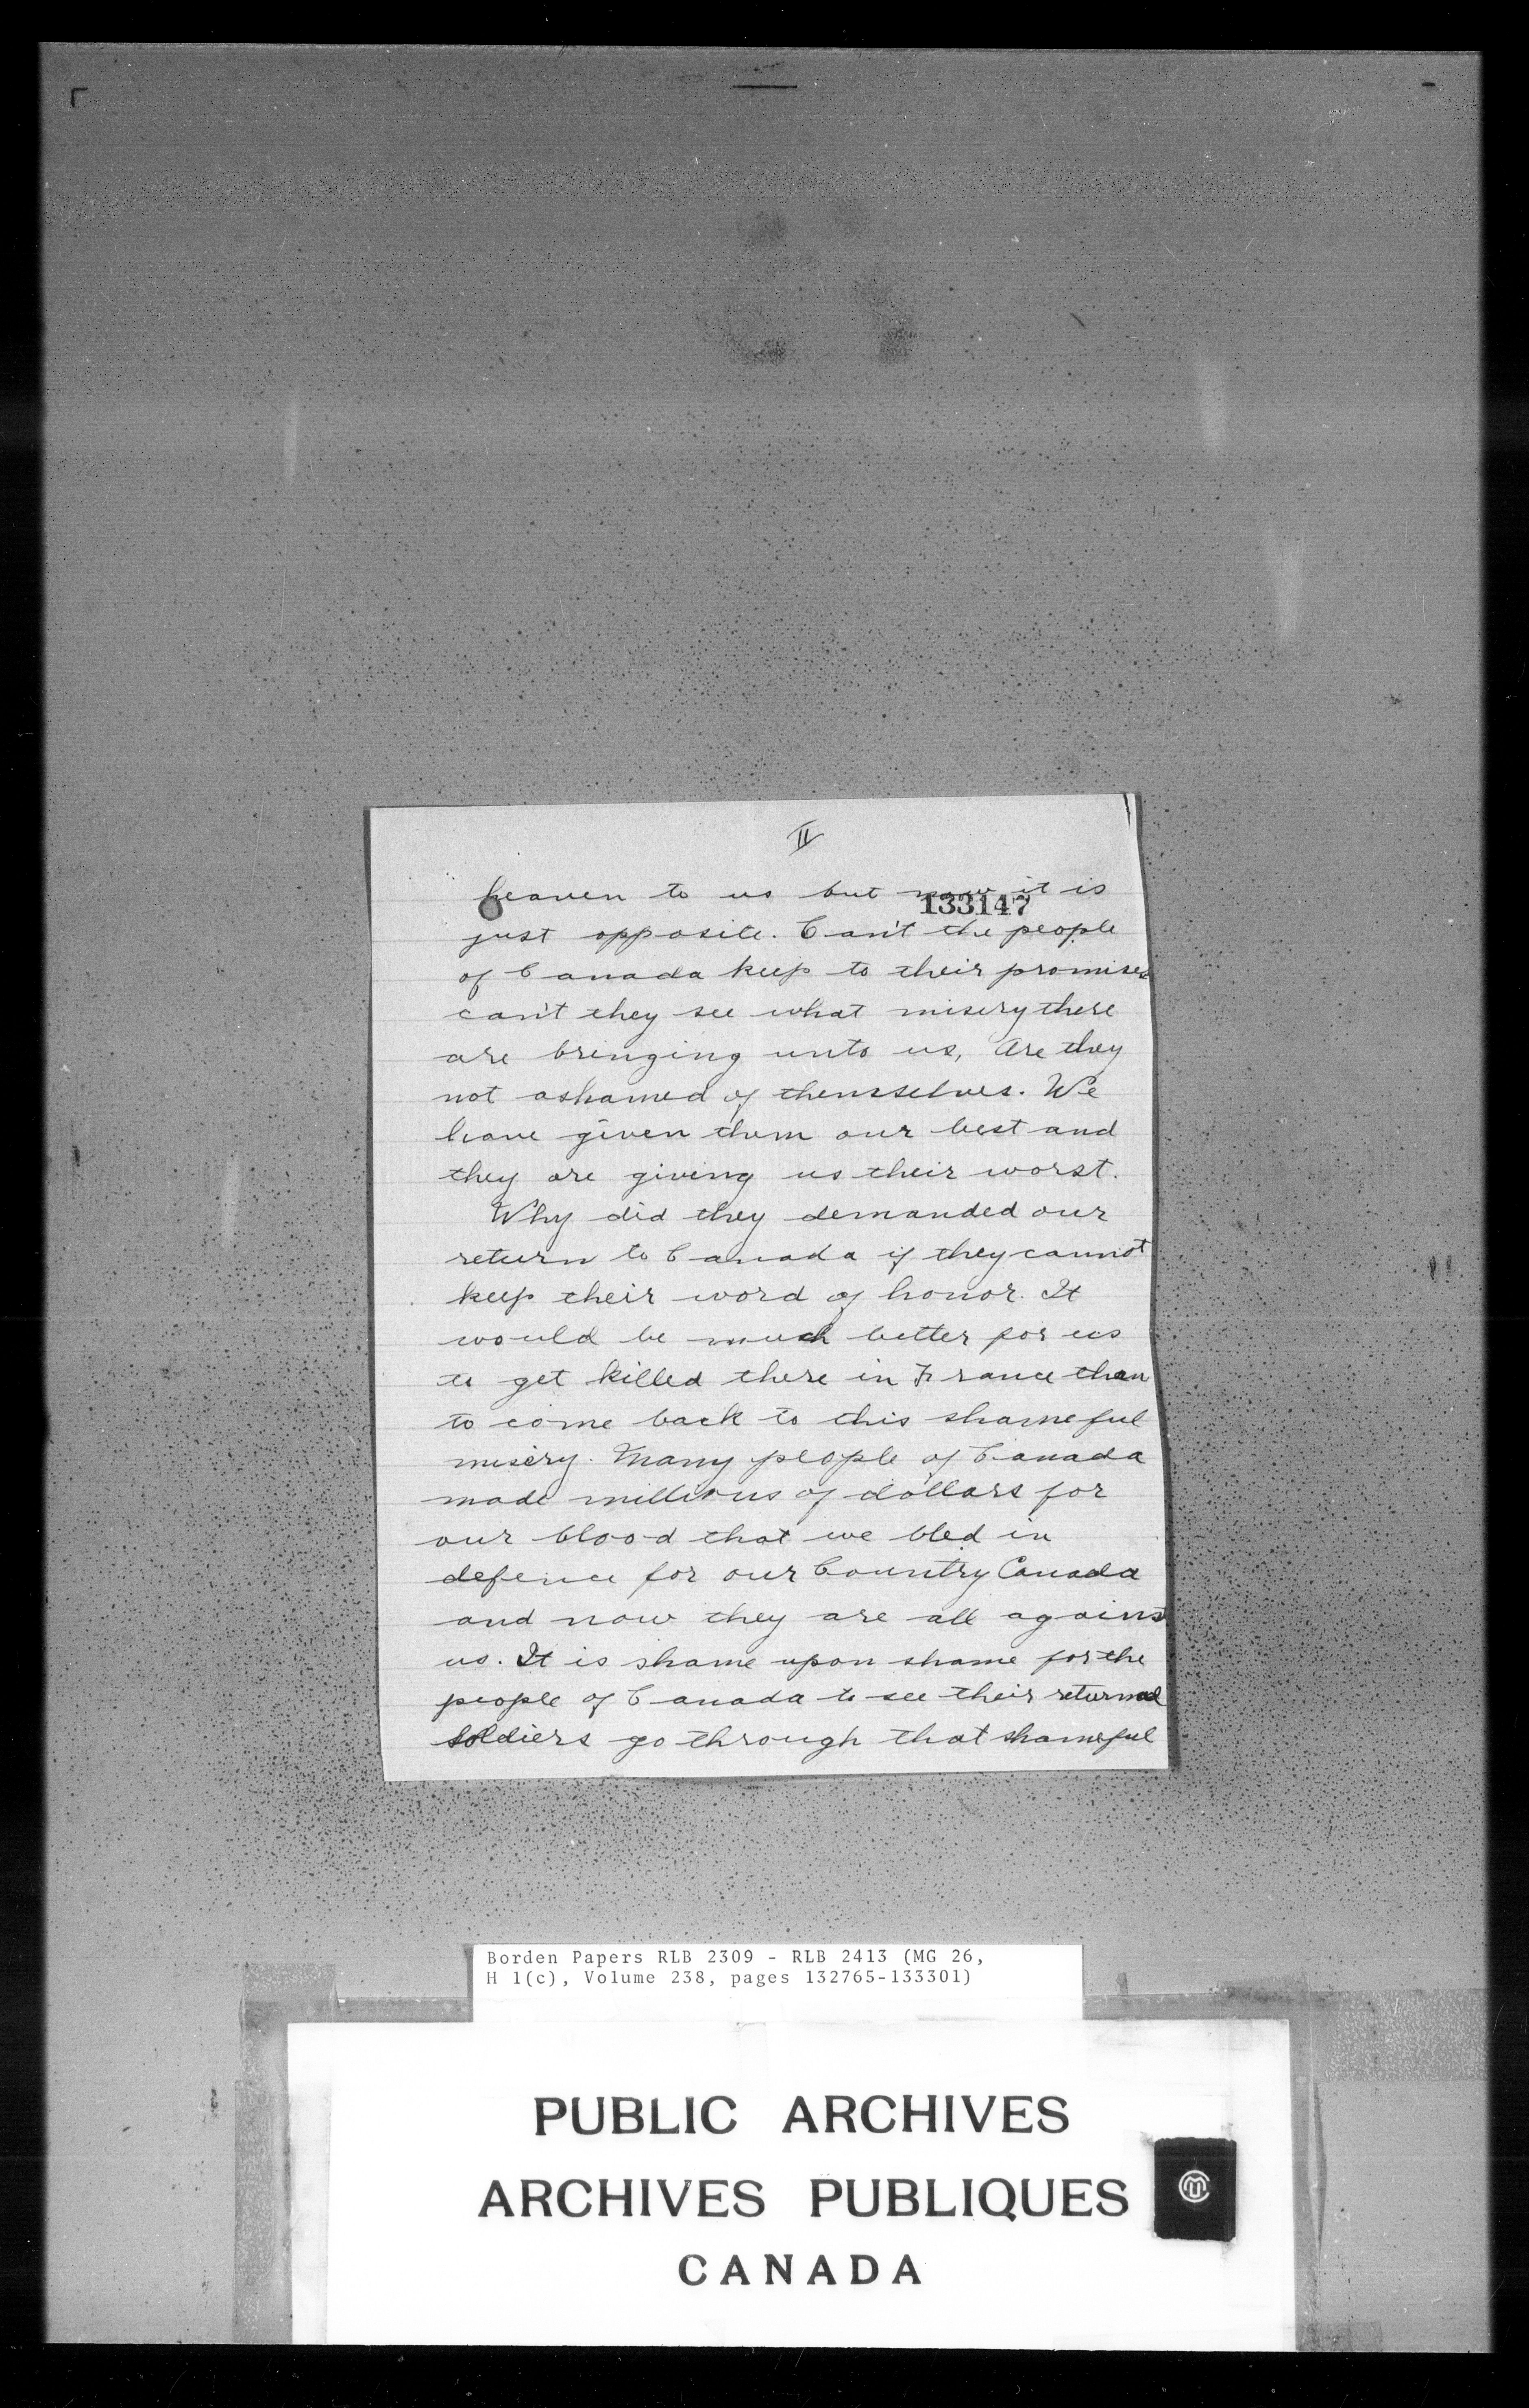 II
heaven to us but now it is
133147
just opposite. Can't the people
of Canada keep to their promises
can't they see what misery there
are bringing unto us, Are they
not ashamed of themsselves. We
have given them our best and
they are giving us their worst.
Why did they demanded our
return to Canada if they cannot
keep their word of honor. It
would be much better for us
to get killed there in France than
to come back to this shameful
misery. Many people of Canada
made millions of dollars for
our blood that we bled in
defence for our Country Canada
and now they are all against
us. It is shame upon shame for the
people of Canada to see their returned
soldiers go through that shameful
Borden Papers RLB 2309 - RLB 2413 (MG 26,
H 1(c), Volume 238, pages 132765-133301)
PUBLIC ARCHIVES
ARCHIVES PUBLIQUES
CANADA